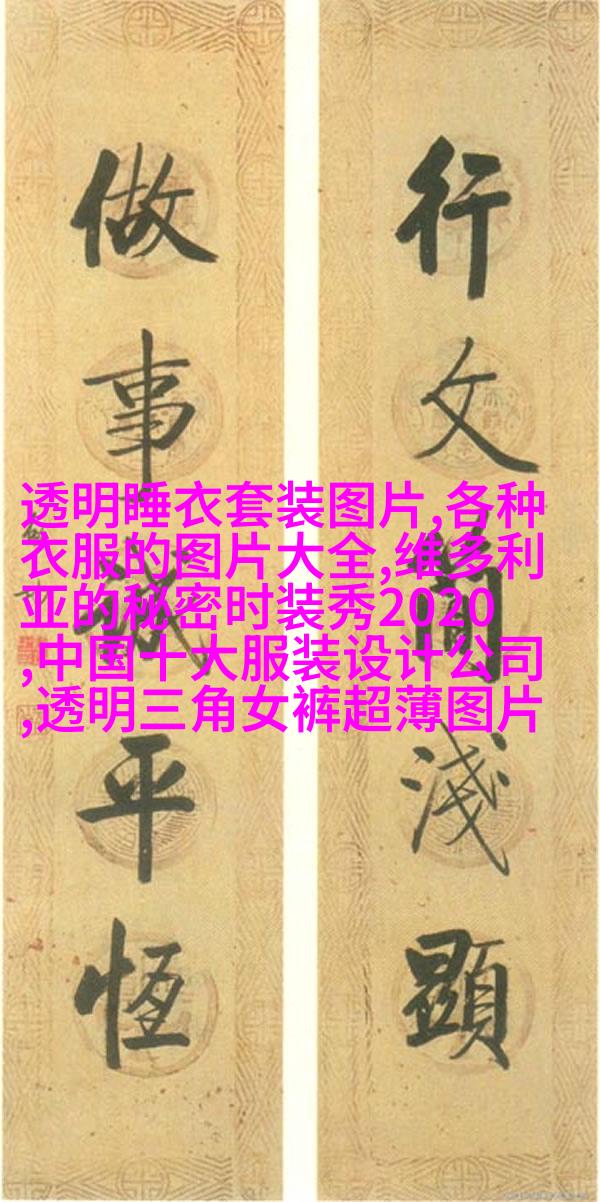 行文簡淺顯
做事誠平恆
透明睡衣套装图片,各种
衣服的图片大全,维多利
亚的秘密时装秀2020
,中国十大服装设计公司
,透明三角女裤超薄图片